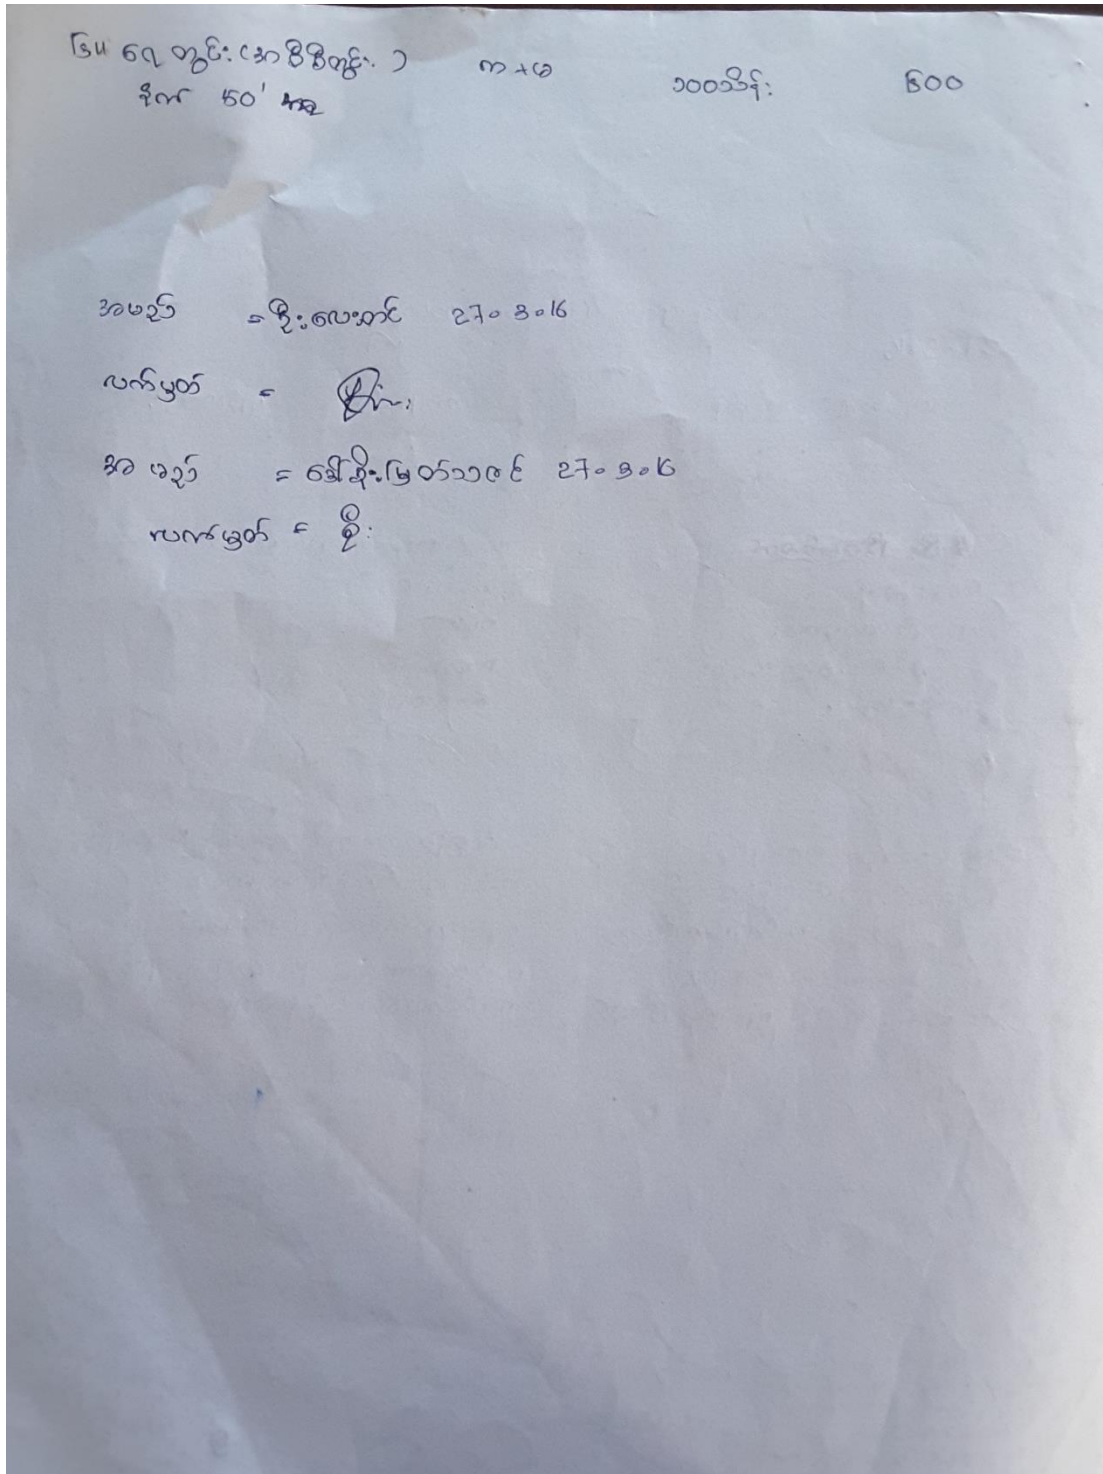 ၆။ ရေတွင်း (အဝီစိတွင်း) က + မ ၁၀၀သိန်း ၆၀၀
နိုက် ၆၀'
အမည် = စိုးလေးတင် 27.3.16
လက်မှတ် =
အမည် = ဒေါ်စိုးမြတ်သဇင် 27.3.16
လက်မှတ် = စိုး